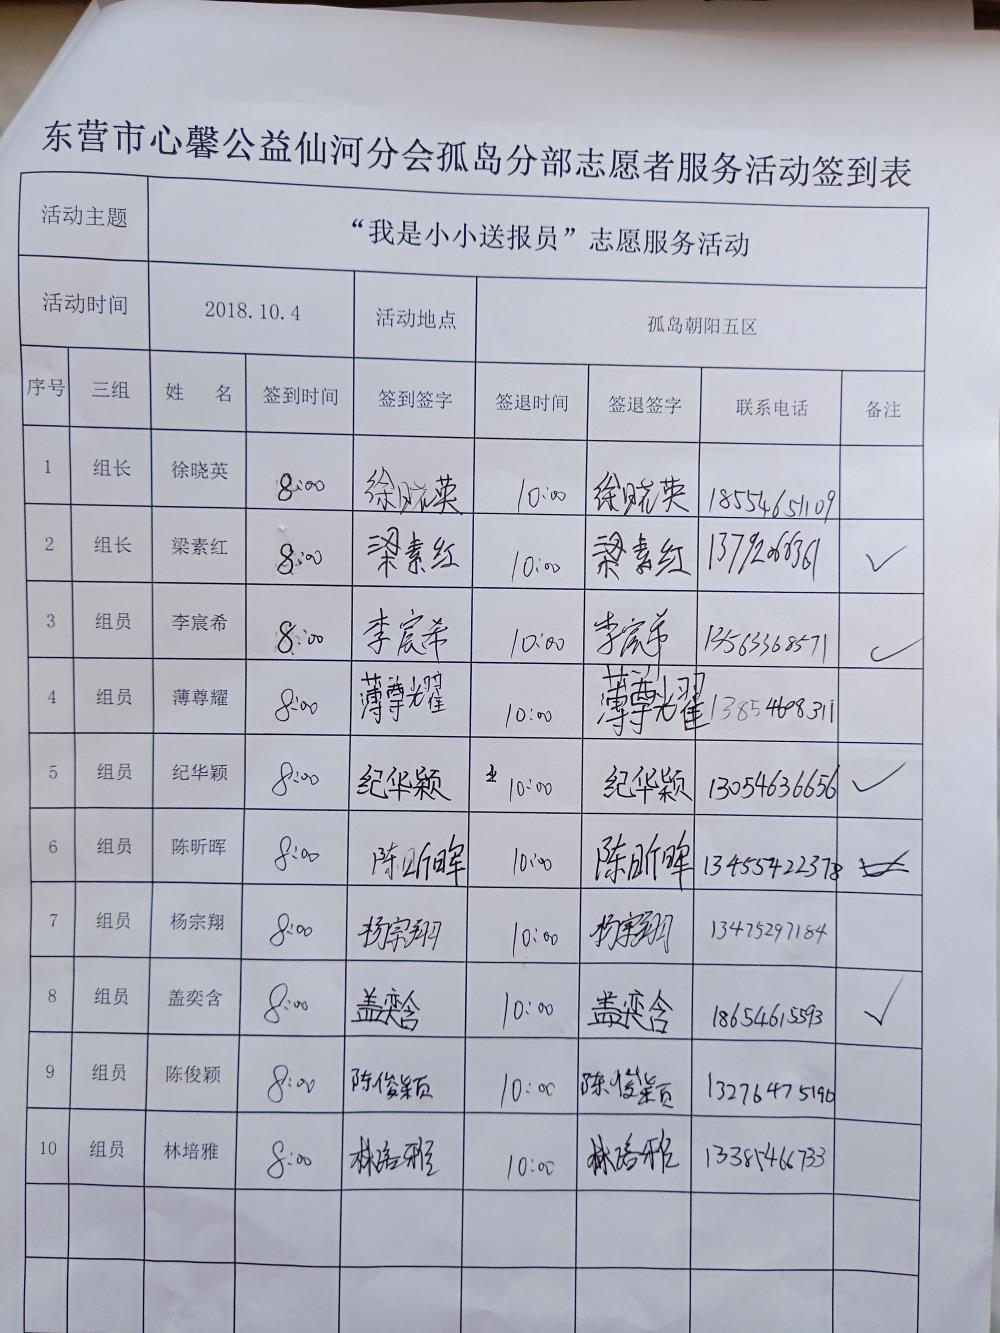 东营市心馨公益仙河分会孤岛分部志愿者服务活动签到表
活动主题 “我是小小送报员”志愿服务活动
活动时间 2018.10.4 活动地点 孤岛朝阳五区
序号 三组 姓 名 签到时间 签到签字 签退时间 签退签字 联系电话 备注
1 组长 徐晓英 8:00 徐晓英 10:00 徐晓英 18554651109
2 组长 梁素红 8:00 梁素红 10:00 梁素红 ✓
3 组员 李宸希 8:00 李宸希 10:00 李宸希 13563368571 ✓
4 组员 薄尊耀 8:00 薄尊耀 10:00 薄尊耀
5 组员 纪华颖 8:00 纪华颖 10:00 纪华颖 13054636656 ✓
6 组员 陈昕晖 8:00 陈昕晖 10:00 陈昕晖 13455422378
7 组员 杨宗翔 8:00 杨宗翔 10:00 杨宗翔 13475297184
8 组员 盖奕含 8:00 盖奕含 10:00 盖奕含 18654615593 ✓
9 组员 陈俊颖 8:00 陈俊颖 10:00 陈俊颖 13276475190
10 组员 林培雅 8:00 林培雅 10:00 林培雅 13385466733